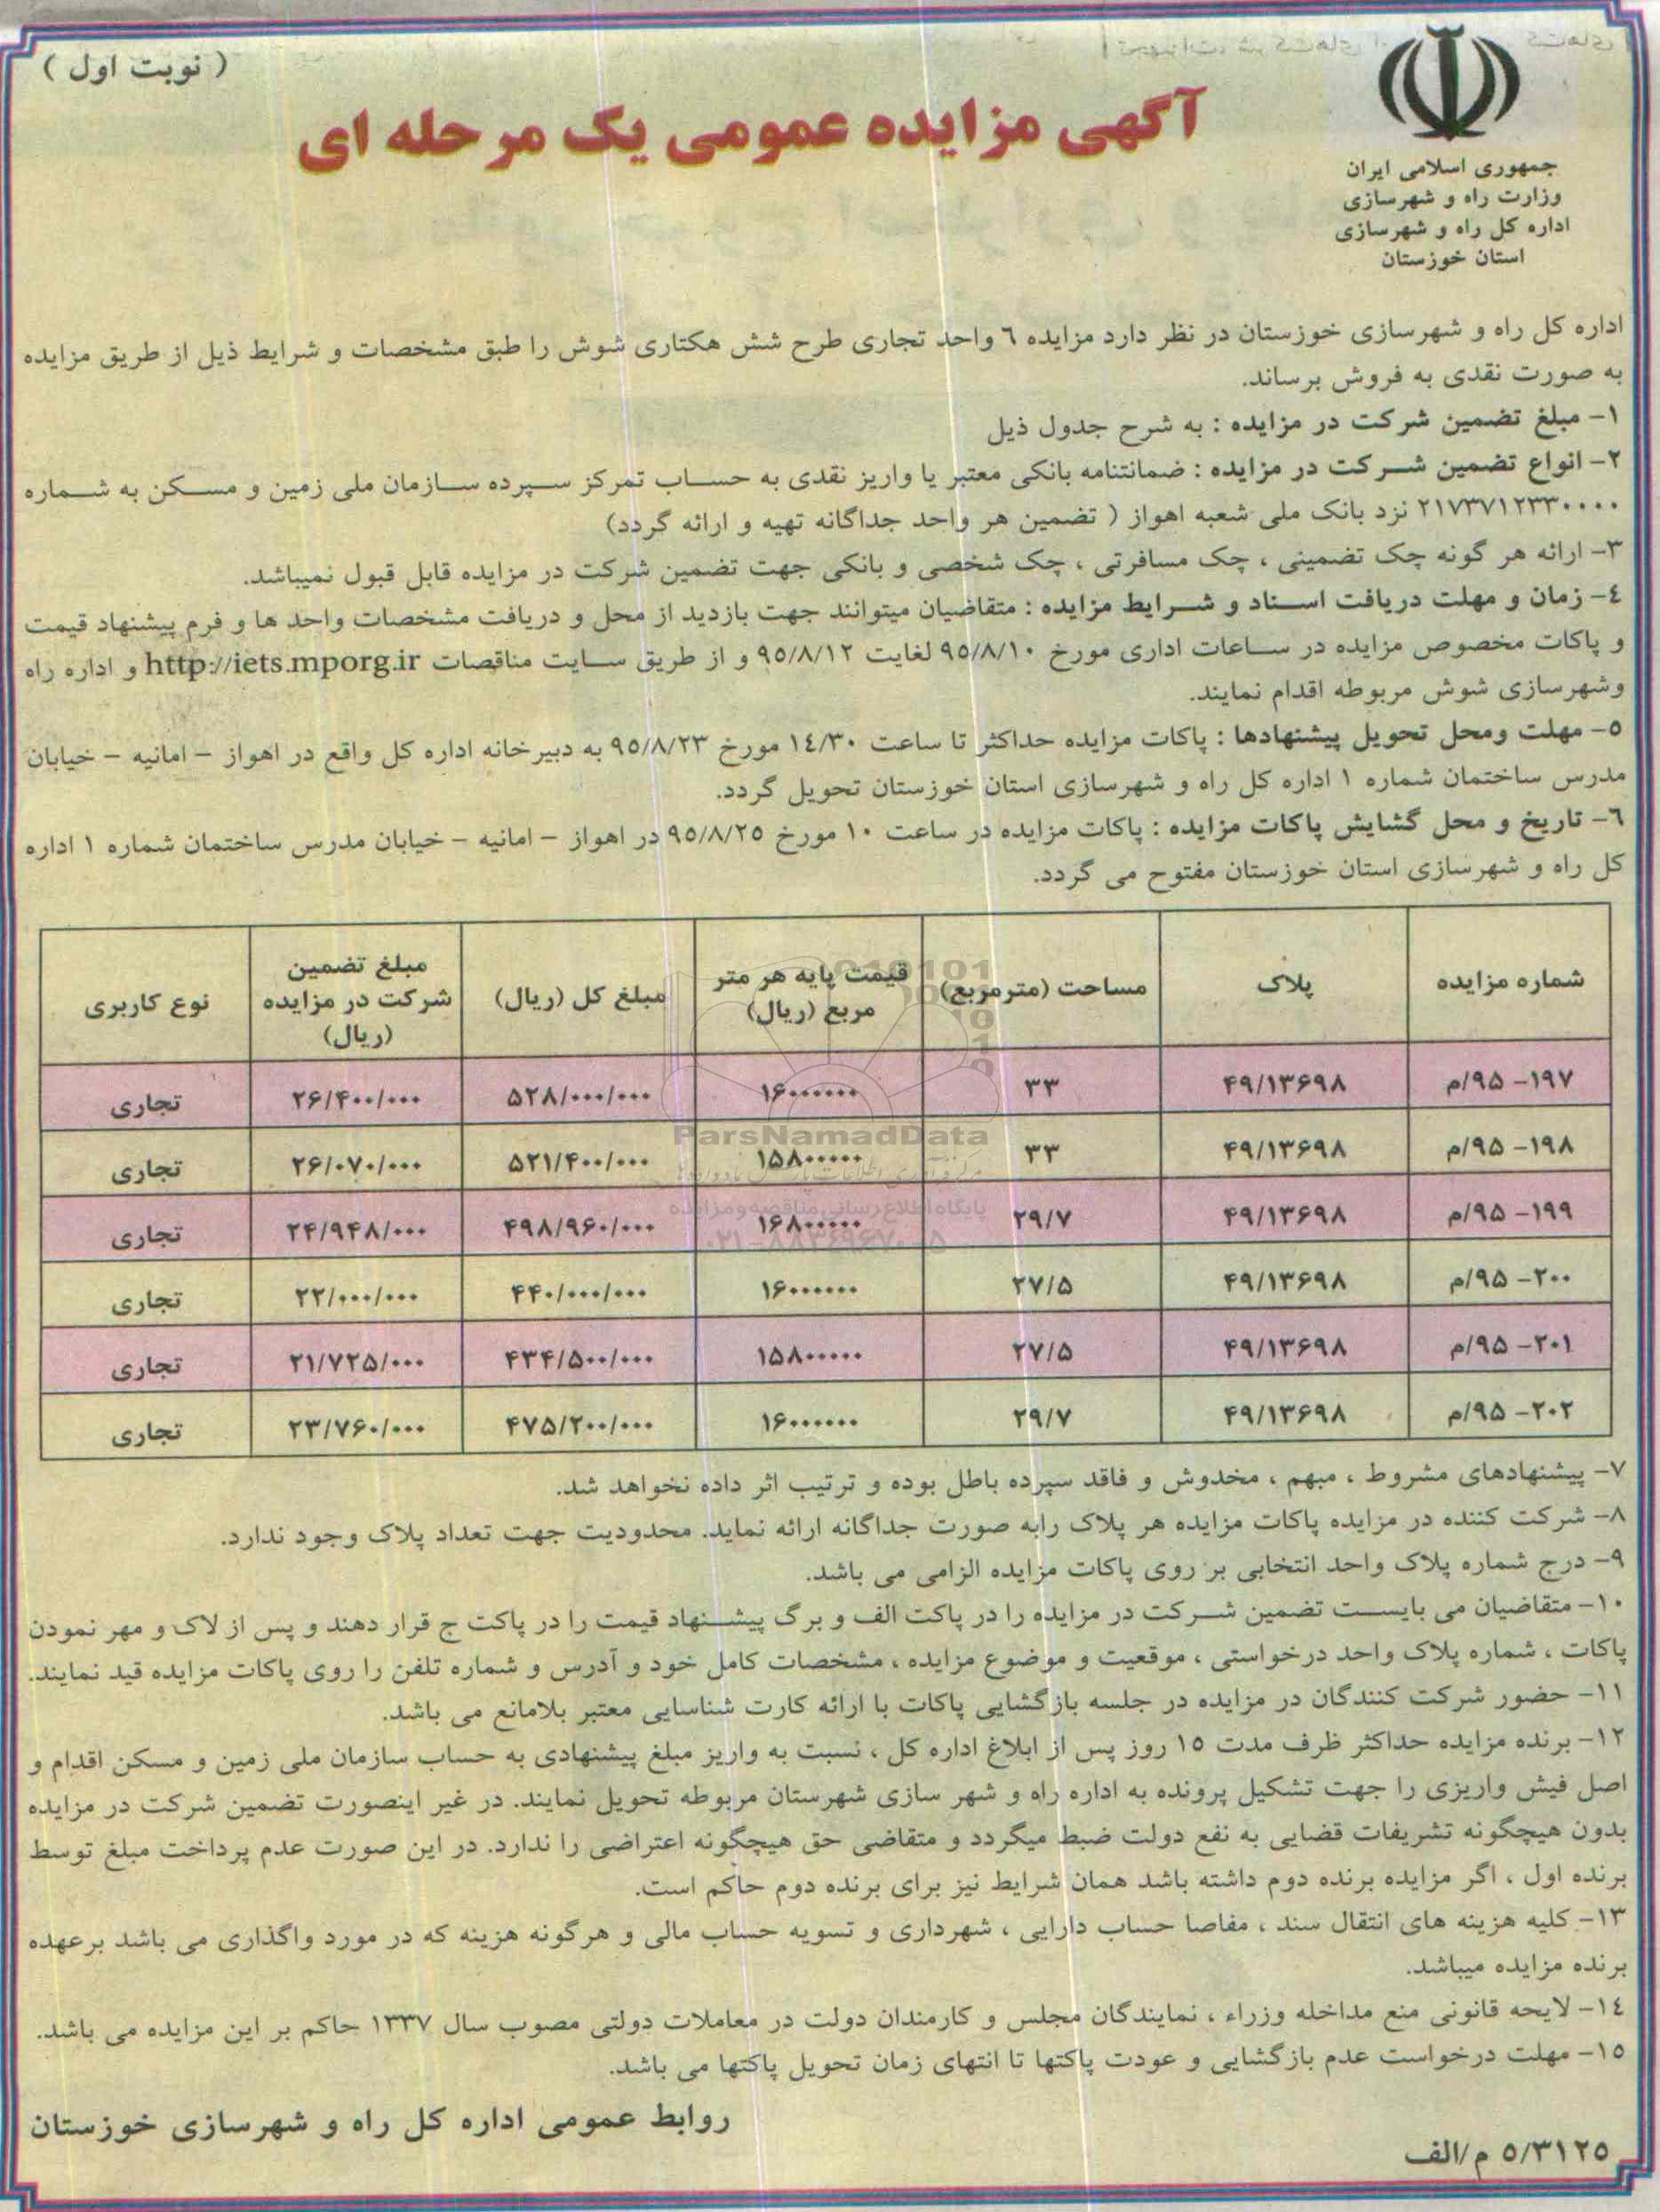 ( نوبت اول )
جمهوری اسلامی ایران
وزارت راه و شهرسازی
اداره کل راه و شهرسازی
استان خوزستان
آگهی مزایده عمومی یک مرحله ای
اداره کل راه و شهرسازی خوزستان در نظر دارد مزایده ٦ واحد تجاری طرح شش هکتاری شوش را طبق مشخصات و شرایط ذیل از طریق مزایده
به صورت نقدی به فروش برساند.
۱- مبلغ تضمین شرکت در مزایده : به شرح جدول ذیل
۲- انواع تضمین شرکت در مزایده : ضمانتنامه بانکی معتبر یا واریز نقدی به حساب تمرکز سپرده سازمان ملی زمین و مسکن به شماره
۲۱۷۳۷۱۲۳۳۰۰۰۰ نزد بانک ملی شعبه اهواز ( تضمین هر واحد جداگانه تهیه و ارائه گردد)
۳- ارائه هر گونه چک تضمینی ، چک مسافرتی ، چک شخصی و بانکی جهت تضمین شرکت در مزایده قابل قبول نمیباشد.
٤- زمان و مهلت دریافت اسناد و شرایط مزایده : متقاضیان میتوانند جهت بازدید از محل و دریافت مشخصات واحد ها و فرم پیشنهاد قیمت
و پاکات مخصوص مزایده در ساعات اداری مورخ ۹٥/۸/۱۰ لغایت ۹٥/۸/۱۲ و از طریق سایت مناقصات http://iets.mporg.ir و اداره راه
وشهرسازی شوش مربوطه اقدام نمایند.
٥- مهلت ومحل تحویل پیشنهادها : پاکات مزایده حداکثر تا ساعت ۱٤/۳۰ مورخ ۹٥/۸/۲۳ به دبیرخانه اداره کل واقع در اهواز – امانیه – خیابان
مدرس ساختمان شماره ۱ اداره کل راه و شهرسازی استان خوزستان تحویل گردد.
٦- تاریخ و محل گشایش پاکات مزایده : پاکات مزایده در ساعت ۱۰ مورخ ۹٥/۸/۲٥ در اهواز – امانیه – خیابان مدرس ساختمان شماره ۱ اداره
کل راه و شهرسازی استان خوزستان مفتوح می گردد.
شماره مزایده پلاک مساحت (مترمربع) قیمت پایه هر متر مربع (ریال) مبلغ کل (ریال) مبلغ تضمین شرکت در مزایده (ریال) نوع کاربری
۱۹۷- ۹۵/م ۴۹/۱۳۶۹۸ ۳۳ ۱۶۰۰۰۰۰۰ ۵۲۸/۰۰۰/۰۰۰ ۲۶/۴۰۰/۰۰۰ تجاری
۱۹۸- ۹۵/م ۴۹/۱۳۶۹۸ ۳۳ ۱۵۸۰۰۰۰۰ ۵۲۱/۴۰۰/۰۰۰ ۲۶/۰۷۰/۰۰۰ تجاری
۱۹۹- ۹۵/م ۴۹/۱۳۶۹۸ ۲۹/۷ ۱۶۸۰۰۰۰۰ ۴۹۸/۹۶۰/۰۰۰ ۲۴/۹۴۸/۰۰۰ تجاری
۲۰۰- ۹۵/م ۴۹/۱۳۶۹۸ ۲۷/۵ ۱۶۰۰۰۰۰۰ ۴۴۰/۰۰۰/۰۰۰ ۲۲/۰۰۰/۰۰۰ تجاری
۲۰۱- ۹۵/م ۴۹/۱۳۶۹۸ ۲۷/۵ ۱۵۸۰۰۰۰۰ ۴۳۴/۵۰۰/۰۰۰ ۲۱/۷۲۵/۰۰۰ تجاری
۲۰۲- ۹۵/م ۴۹/۱۳۶۹۸ ۲۹/۷ ۱۶۰۰۰۰۰۰ ۴۷۵/۲۰۰/۰۰۰ ۲۳/۷۶۰/۰۰۰ تجاری
ParsNamadData
پایگاه اطلاع رسانی مناقصه و مزایده
۷- پیشنهادهای مشروط ، مبهم ، مخدوش و فاقد سپرده باطل بوده و ترتیب اثر داده نخواهد شد.
۸- شرکت کننده در مزایده پاکات مزایده هر پلاک رابه صورت جداگانه ارائه نماید. محدودیت جهت تعداد پلاک وجود ندارد.
۹- درج شماره پلاک واحد انتخابی بر روی پاکات مزایده الزامی می باشد.
۱۰- متقاضیان می بایست تضمین شرکت در مزایده را در پاکت الف و برگ پیشنهاد قیمت را در پاکت ج قرار دهند و پس از لاک و مهر نمودن
پاکات ، شماره پلاک واحد درخواستی ، موقعیت و موضوع مزایده ، مشخصات کامل خود و آدرس و شماره تلفن را روی پاکات مزایده قید نمایند.
۱۱- حضور شرکت کنندگان در مزایده در جلسه بازگشایی پاکات با ارائه کارت شناسایی معتبر بلامانع می باشد.
۱۲- برنده مزایده حداکثر ظرف مدت ۱٥ روز پس از ابلاغ اداره کل ، نسبت به واریز مبلغ پیشنهادی به حساب سازمان ملی زمین و مسکن اقدام و
اصل فیش واریزی را جهت تشکیل پرونده به اداره راه و شهر سازی شهرستان مربوطه تحویل نمایند. در غیر اینصورت تضمین شرکت در مزایده
بدون هیچگونه تشریفات قضایی به نفع دولت ضبط میگردد و متقاضی حق هیچگونه اعتراضی را ندارد. در این صورت عدم پرداخت مبلغ توسط
برنده اول ، اگر مزایده برنده دوم داشته باشد همان شرایط نیز برای برنده دوم حاکم است.
۱۳- کلیه هزینه های انتقال سند ، مفاصا حساب دارایی ، شهرداری و تسویه حساب مالی و هرگونه هزینه که در مورد واگذاری می باشد برعهده
برنده مزایده میباشد.
۱٤- لایحه قانونی منع مداخله وزراء ، نمایندگان مجلس و کارمندان دولت در معاملات دولتی مصوب سال ۱۳۳۷ حاکم بر این مزایده می باشد.
۱٥- مهلت درخواست عدم بازگشایی و عودت پاکتها تا انتهای زمان تحویل پاکتها می باشد.
روابط عمومی اداره کل راه و شهرسازی خوزستان
٥/۳۱۲٥ م/الف